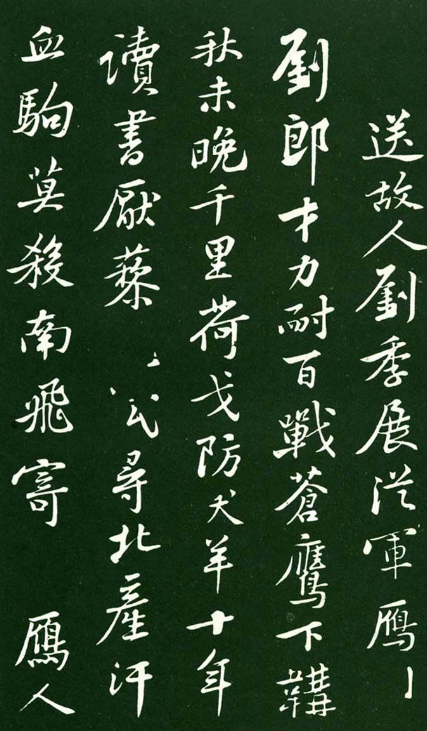 送故人劉季展從軍鴈
劉郎才力耐百戰蒼鷹下韝
秋未晚千里荷戈防犬羊十年
讀書厭藜尋北產汗
血駒莫殺南飛寄鴈人